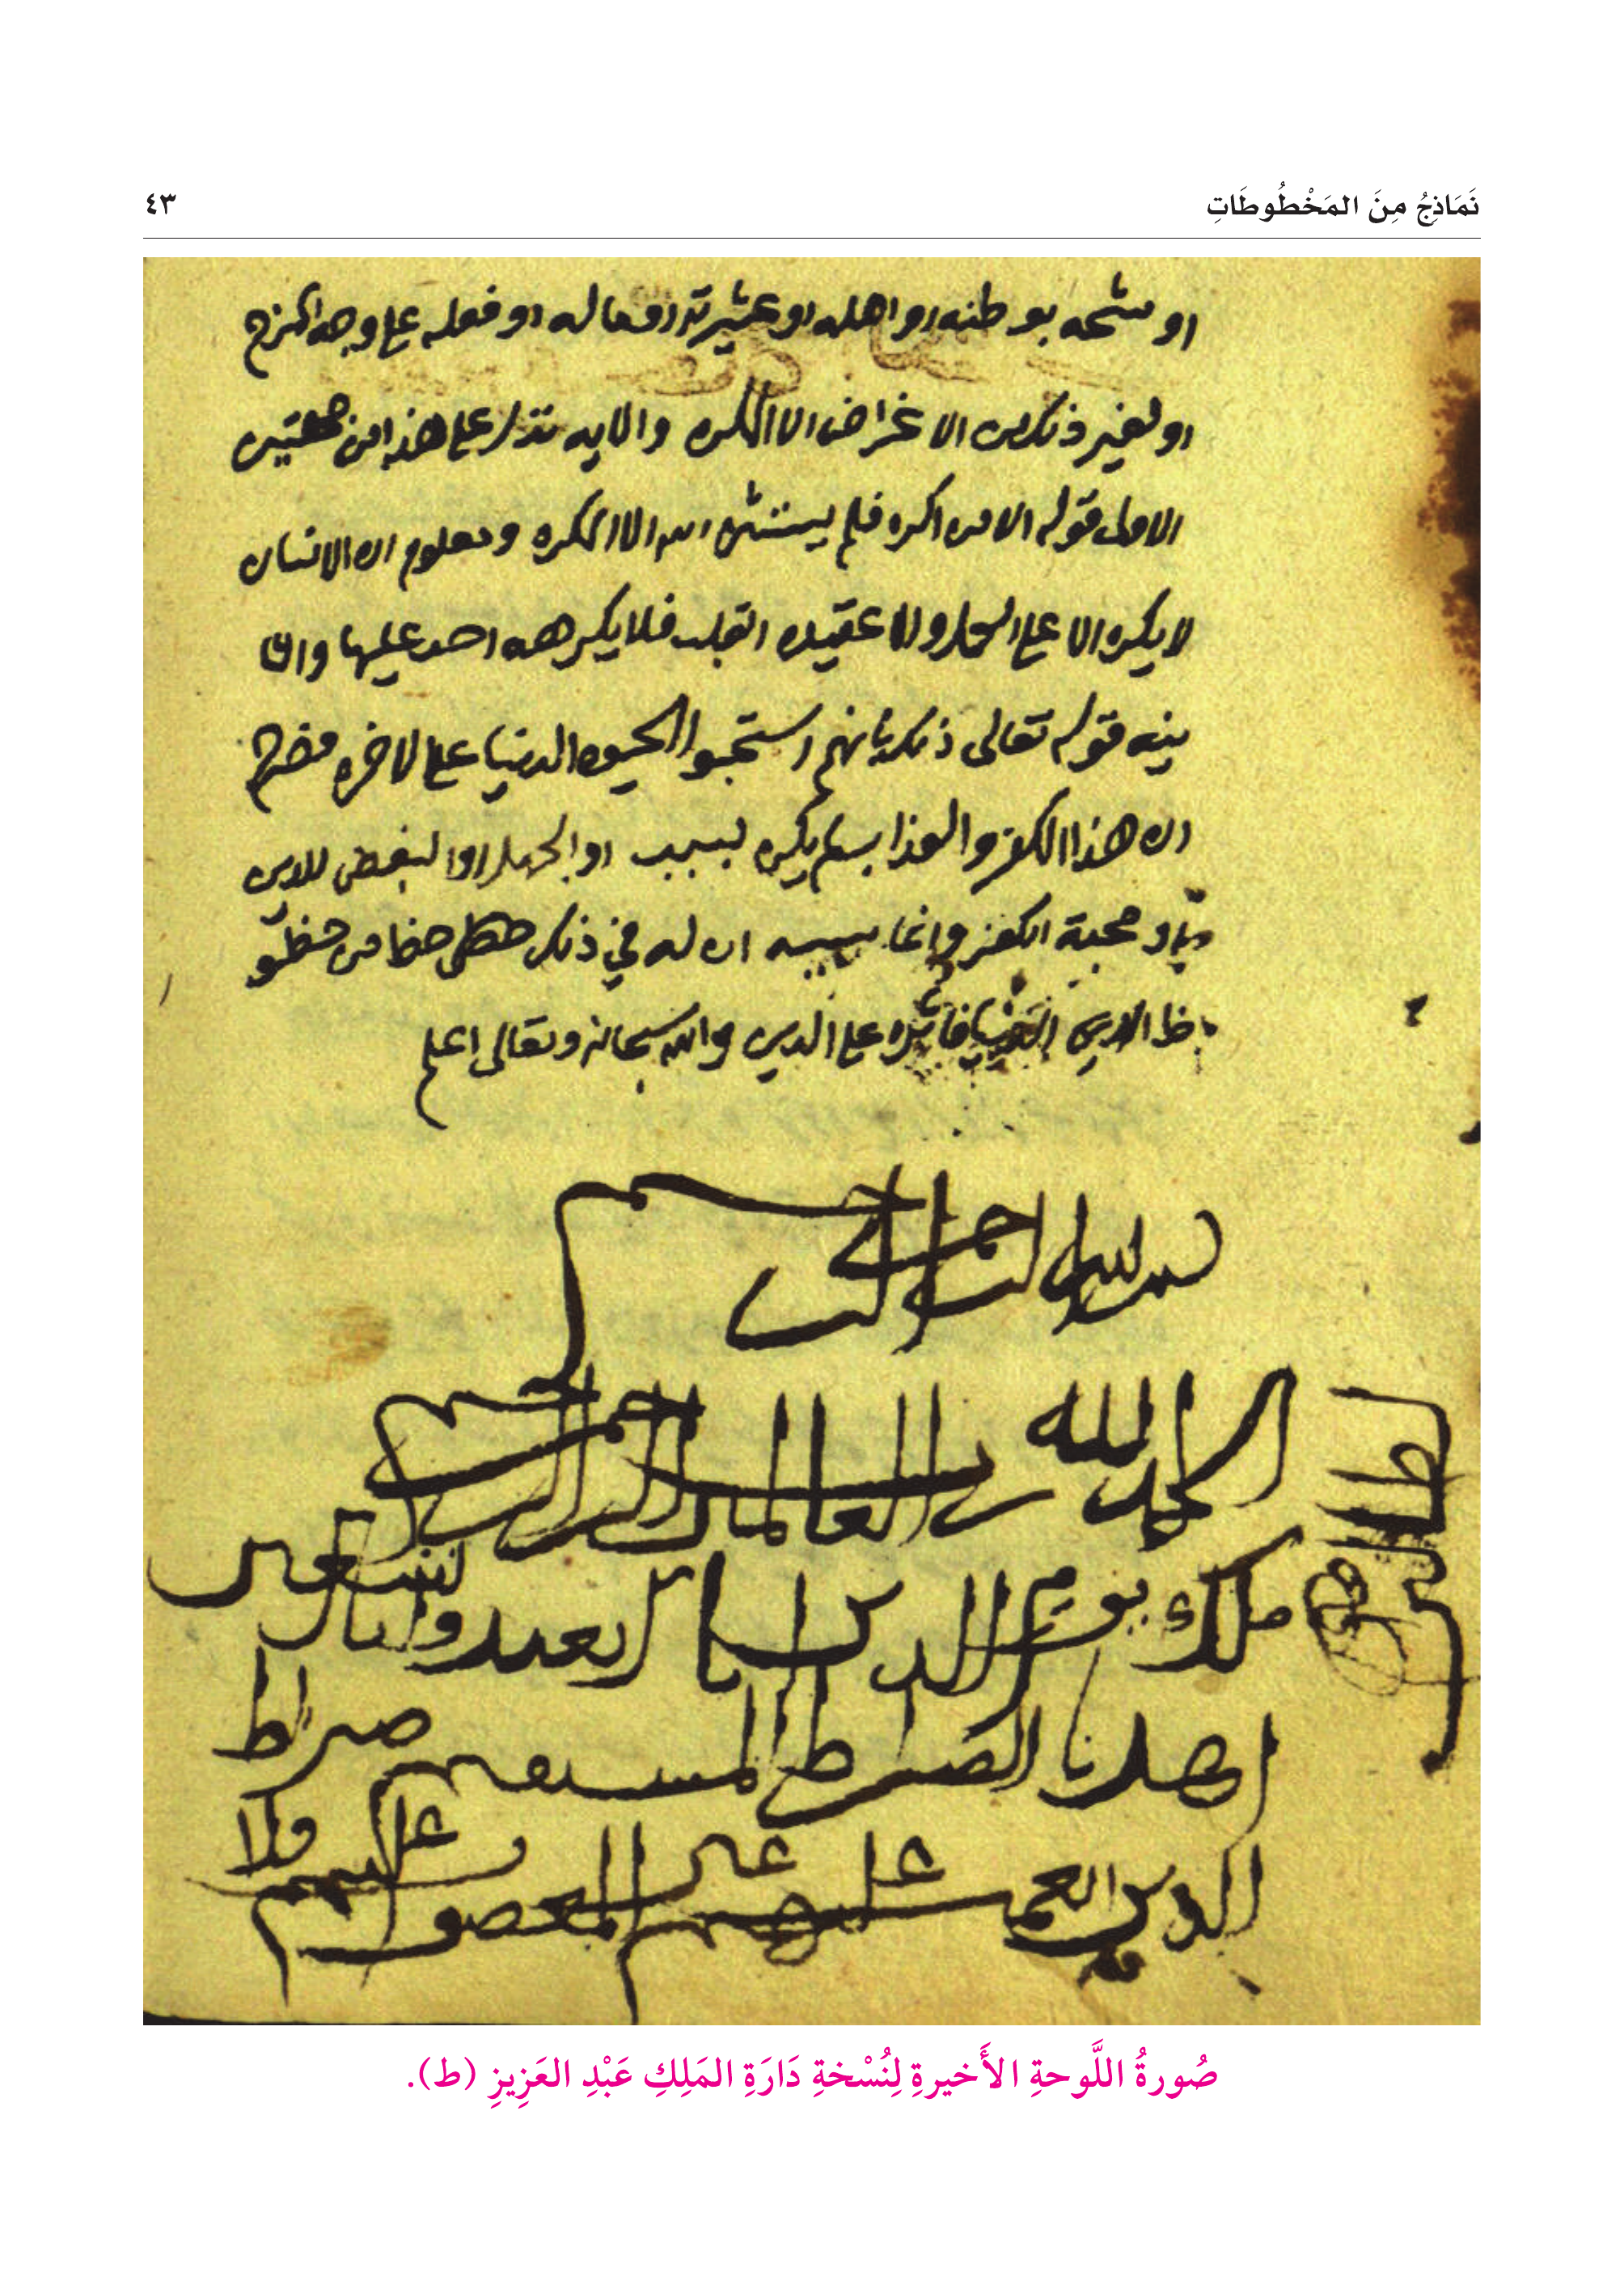 نَمَاذِجُ مِنَ المَخْطُوطَاتِ
٤٣
او مشحه بوطنه او اهله او عشيرته او ماله او فعله على وجه المزح
او لغير ذلك من الاغراض الا المكره والايه تدل على هذا من جهتين
الاولى قوله الا من اكره فلم يستثن الله الا المكره ومعلوم ان الانسان
لا يكره الا على العمل ولا عقيده القلب فلا يكرهه احد عليها والثا
نيه قوله تعالى ذلك بانهم استحبوا الحيوه الدنيا على لاخره فصرح
ان هذا الكفر والعذاب لم يكن بسبب او الجهل او البغض للدين
او محبة الكفر وانما سببه ان له في ذلك حظا من حظو
ظ الدنيا فاثره على الدين والله سبحانه وتعالى اعلم
بسم الله الرحمن الرحيم
الحمد لله رب العالمين الرحمن الرحيم
ملك يوم الدين اياك نعبد واياك نستعين
اهدنا الصراط المستقيم صراط
الذين انعمت عليهم غير المغضوب عليهم ولا
صُورةُ اللَّوحةِ الأَخيرةِ لِنُسْخةِ دَارَةِ المَلِكِ عَبْدِ العَزِيزِ (ط).